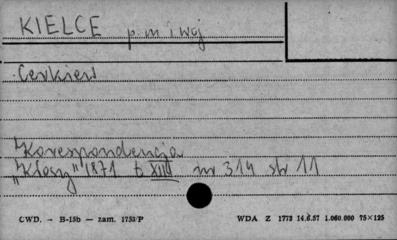 KIELCE p. m i woj
Cerkiew
"Korespondencja
"Kłosy" 1871 t. XIII nr 314 str 11
CWD. — B-15b — zam. 1753/P WDA Z 1773 14.6.57 1.060.000 75×125